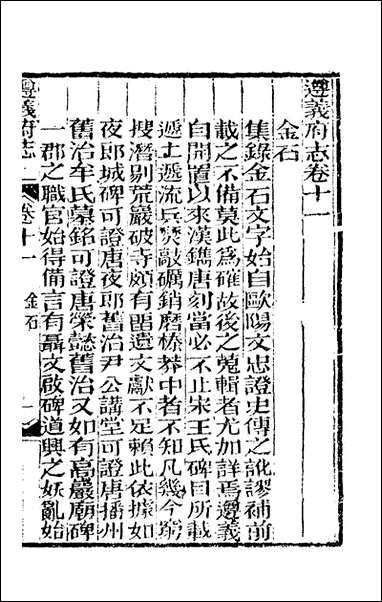 遵義府志卷十一
金石
集錄金石文字始自歐陽文忠證史傳之訛謬補前
載之不備莫此為確故後之蒐輯者尤加詳焉遵義
自開置以來漢鐫唐刻當必不止宋王氏碑目所載
遞土遞流兵燹敲礪銷磨榛莽中者不知凡幾今窮
搜潛剔荒巖破寺頗有留遺文獻不足賴此依據如
夜郎城碑可證唐夜郎舊治尹公講堂可證唐播州
舊治牟氏墓銘可證唐榮懿舊治又如有高巖廟碑
一郡之職官始得備言有聶文啟碑道興之妖亂始
遵義府志
卷十一
金石
一